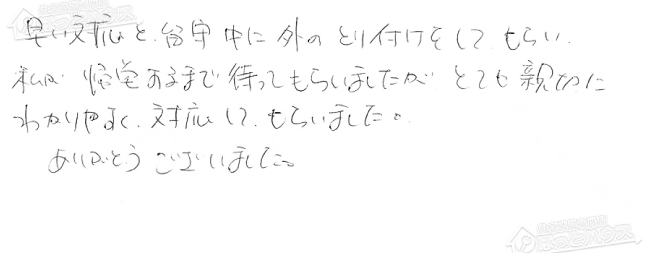 早い対応と、留守中に外のとり付けをして、もらい、
私が帰宅するまで待ってもらいましたが とても親切に
わかりやすく、対応して、もらいました。
ありがとうございました。